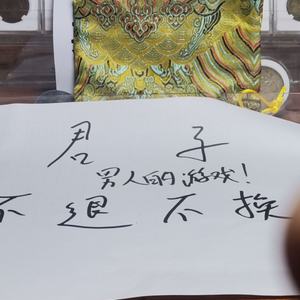 君子
男人的游戏！
不退不换